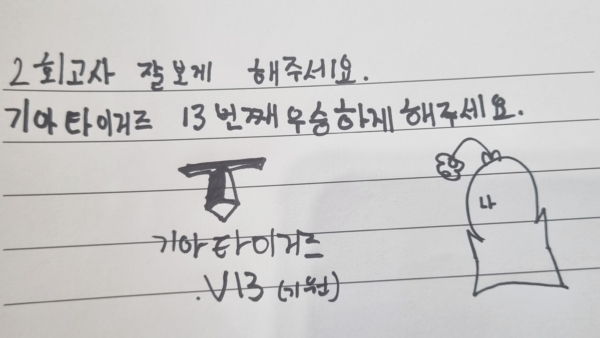 2회고사 잘보게 해주세요.
기아타이거즈 13번째우승하게해주세요.
기아타이거즈
.V13 (기원)
나